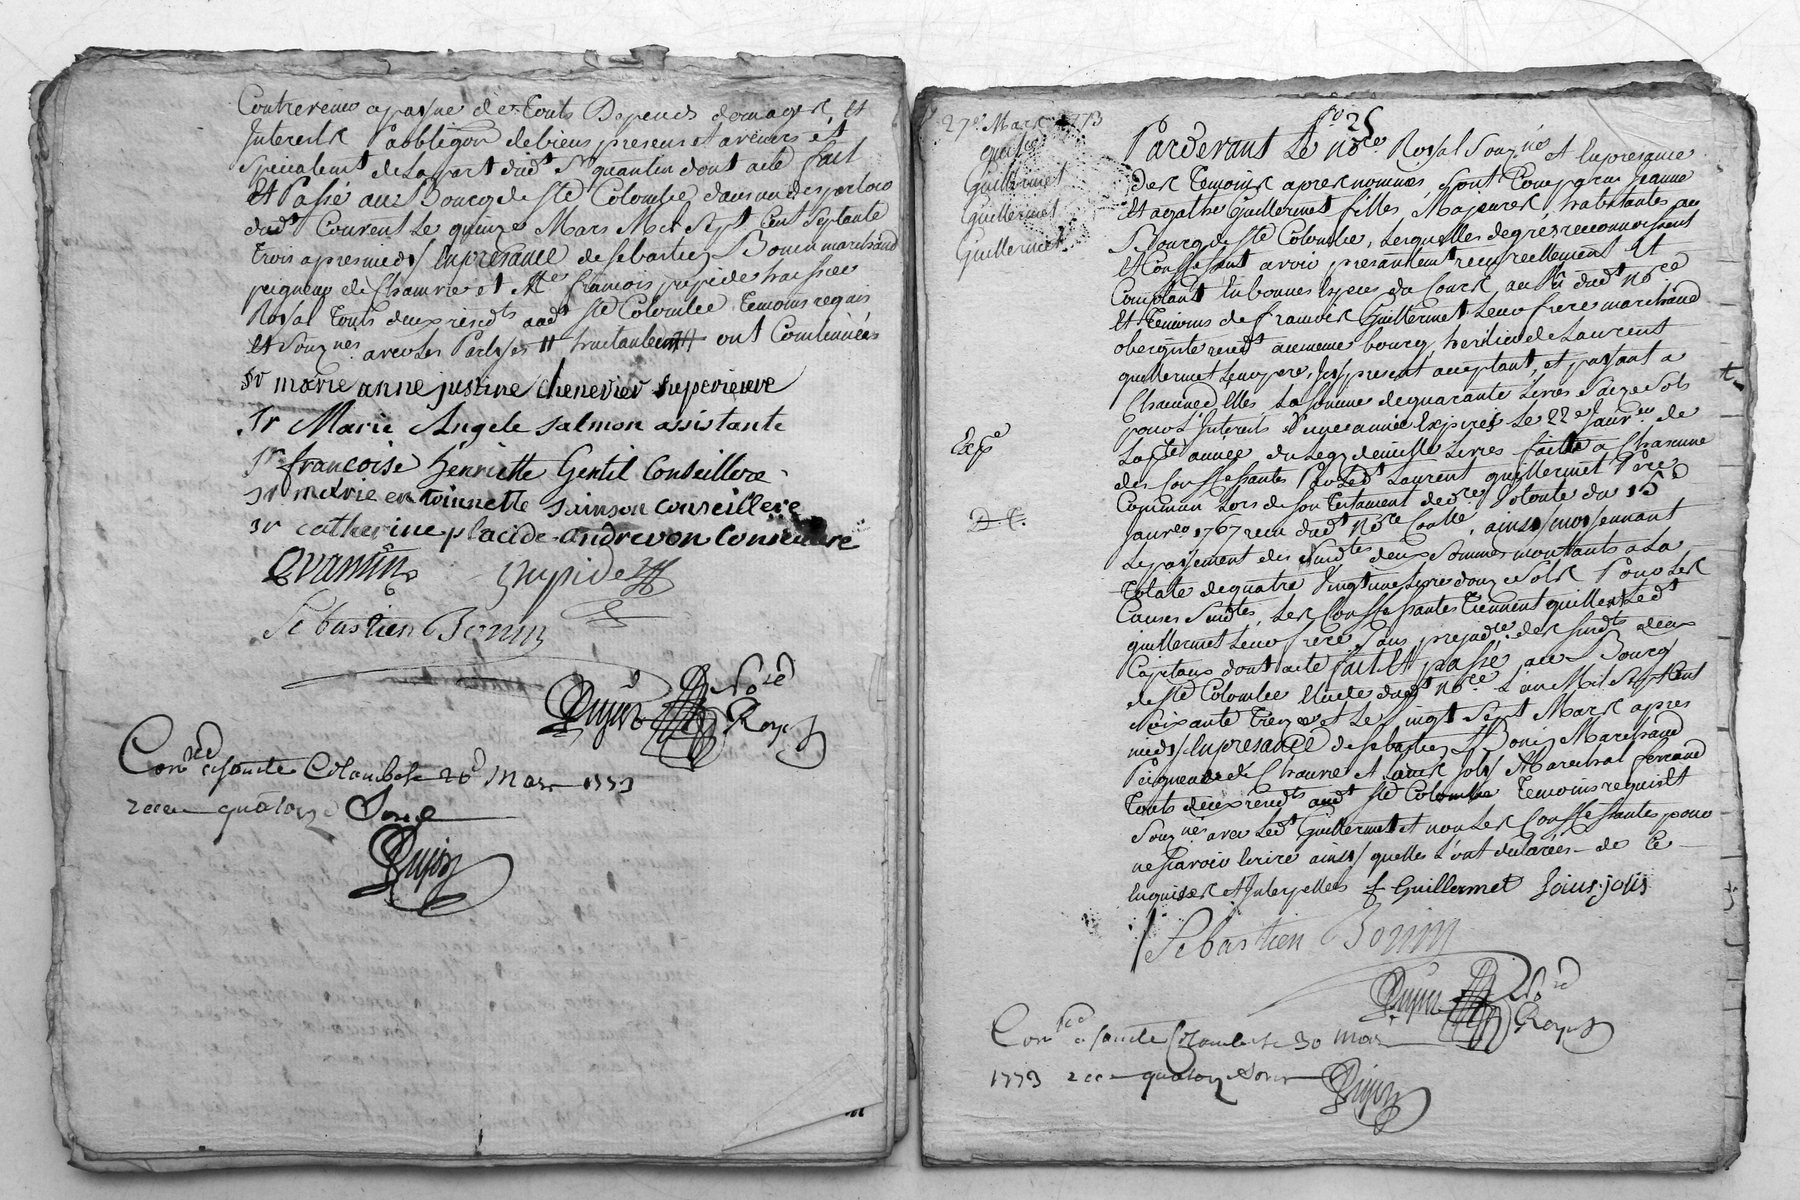 Contrevenir a payne de Touts Depends domages, et
Interests Pa obligõn de biens presens et avenirs et
Spécialemt de la part dudt Sr quantin dont acte fait
Et Passé au Bourg de Ste Colombe dans un des parloirs
dudt Couvent Le quinze Mars Mil Sept Cent Septante
Trois apres midy En presance de Sebastien Bonin marchand
peigneur de Chanvre et Me françois
Royal Touts deux residts audt Ste Colombe Temoins requis
et Souznés avec les Parties
Sr marie anne justine chenevier superieure
Sr Marie Angele Salmon assistante
Sr françoise henriette Gentil Conseillere
Sr marie entoinnette sainson conseillere
Sr catherine placide andrevon Conseillere
Quantin
Sebastien Bonin
Dujon Nore
Royal
Conlé a sainte Colombe le 26 Mars 1773
receu quatorze Sous
Dujon
27e Mars 1773
quitce
Guillermet
Guillermet
Guillermet
fo 25
Pardevant Le Nore Royal Souzné et En presance
des Temoins apres nommés, sont Comparus Jeanne
Et agathe Guillermet filles, Majeures habitantes au
Bourg de Ste Colombe, Lesquelles de gré reconnoissent
Et Confessent avoir presantement receu reellement et
Comptant En bonnes Especes du Cours au vû dudt Nore
Et Temoins de françois Guillermet Leur frere marchand
obergiste residt au meme bourg heritier de Laurent
guillermet Leur pere, Icy present acceptant, et payant a
Chacune d'Elles La Somme de quarante Livres Saize Sols
pour L'Interets d'une année Expirés Le 22e Janvier de
La pte année du Leg de mille Livres faitte a Chacune
des Confessantes Par Ledt Laurent guillermet Pere
Commun Lors de Son Testament de dre Volonté du 15e
Janvr 1767 receu dudt Nore Controllé, ainsy moyennant
Le payement des Susdtes deux Sommes montants a La
Totale de quatre Vingt une Livre douze Sols Pour Les
Causes Susdtes, Les Confessantes Tiennent quitte Ledt
guillermet Leur frere, Sans prejudce des Susdts deux
Capitaux dont acte fait Et passé au Bourg
de Ste Colombe Etude dudt Nore L'an Mil Sept Cent
Soixante Treize et Le Vingt Sept Mars apres
midy En presance de Sebastien Bonin Marchand
Peigneur de Chanvre et Louis joly Marechal ferrand
Touts deux residts audt Ste Colombe Temoins requis Et
Souznés avec Ledt Guillermet et non Les Confessantes pour
ne Sçavoir Ecrire ainsy quelles L'ont declarées de Ce
Enquises et Interpellées f Guillermet Louis joly
Sebastien Bonin
Expe
D. C.
Dujon Nore
Royal
Conlé a sainte Colombe le 30 Mars
1773 receu quatorze Sous
Dujon